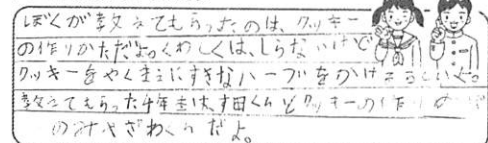 ぼくが教えてもらったのは、クッキー
の作りかただよ。くわしくは、しらないけど
クッキーをやくまえにすきなハーブをかけるらしいよ。
教えてもらった4年生は、す田くんとクッキーの作り
のみやざわくんだよ。